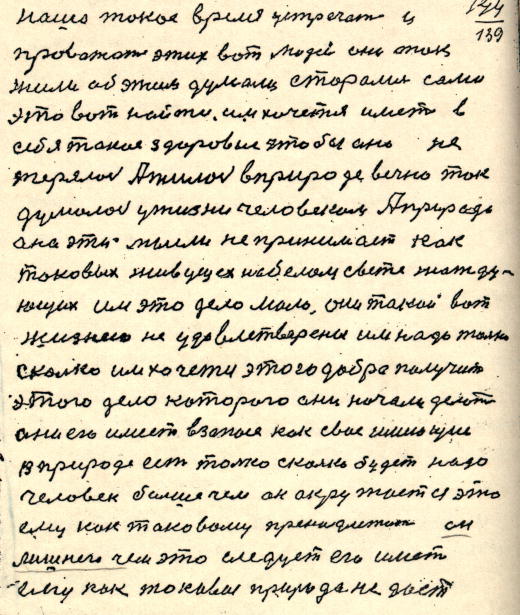 144
139
наше такое время устречат и
проважат этих вот людей они так
жили об этим думали старалис сами
это вот найти. им хочетя имет в
себя такое здоровие чтобы ано не
терялос А жилос в природе вечно так
думалос у жизни человеком А природа
ана эти мысли не принимает как
таковых живущех на белом свете жажду-
ющих им это дело мало, они такой вот
жизнею не удовлетварены им надо толко
сколко им хочетя этого добра получит
этого дело которого они начали делат
они его имеет взапасе как свое имеющие
в природе ест толко сколко будет надо
человек болше чем он акружается это
ему как таковому пренадлежит он
лишнего чем это следует его имет
ему как таковое природа не даст